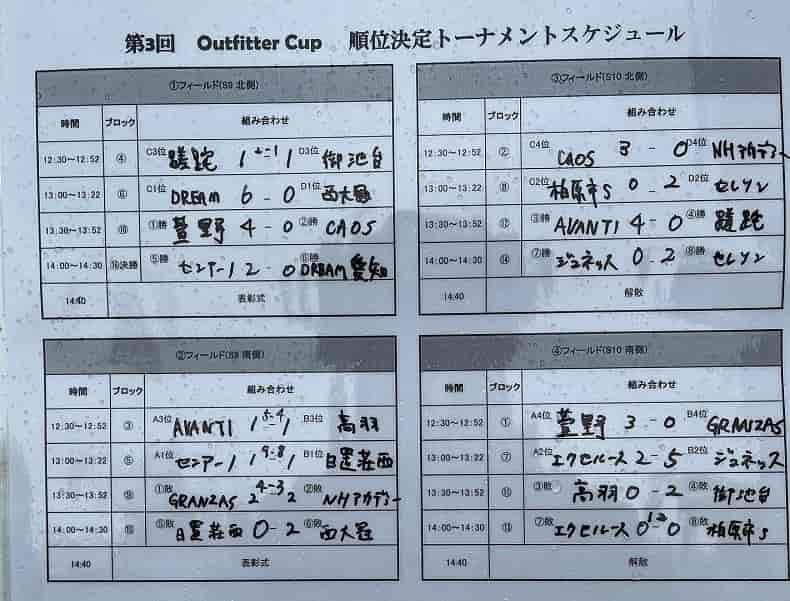 第3回 Outfitter Cup 順位決定トーナメントスケジュール
①フィールド(S9 北側)
時間 ブロック 組み合わせ
12:30～12:52 ④ C3位 蹉跎 1 2-1 1 D3位 御池台
13:00～13:22 ⑥ C1位 DREAM 6 - 0 D1位 西大冠
13:30～13:52 ⑩ ①勝 萱野 4 - 0 ②勝 CAOS
14:00～14:30 ⑯決勝 ⑤勝 センアーノ 2 - 0 ⑥勝 DREAM愛知
14:40 表彰式
③フィールド(S10 北側)
時間 ブロック 組み合わせ
12:30～12:52 ② C4位 CAOS 3 - 0 D4位 NHアカデミー
13:00～13:22 ⑧ C2位 柏原市S 0 - 2 D2位 セレソン
13:30～13:52 ⑫ ③勝 AVANTI 4 - 0 ④勝 蹉跎
14:00～14:30 ⑭ ⑦勝 ジュネッス 0 - 2 ⑧勝 セレソン
14:40 解散
②フィールド(S9 南側)
時間 ブロック 組み合わせ
12:30～12:52 ③ A3位 AVANTI 1 5-4 1 B3位 高羽
13:00～13:22 ⑤ A1位 センアーノ 1 9-8 1 B1位 日置荘西
13:30～13:52 ⑨ ①敗 GRANZAS 2 4-3 2 ②敗 NHアカデミー
14:00～14:30 ⑮ ⑤敗 日置荘西 0 - 2 ⑥敗 西大冠
14:40 表彰式
④フィールド(S10 南側)
時間 ブロック 組み合わせ
12:30～12:52 ① A4位 萱野 3 - 0 B4位 GRANZAS
13:00～13:22 ⑦ A2位 エクセルース 2 - 5 B2位 ジュネッス
13:30～13:52 ⑪ ③敗 高羽 0 - 2 ④敗 御池台
14:00～14:30 ⑬ ⑦敗 エクセルース 0 1-2 0 ⑧敗 柏原市S
14:40 解散